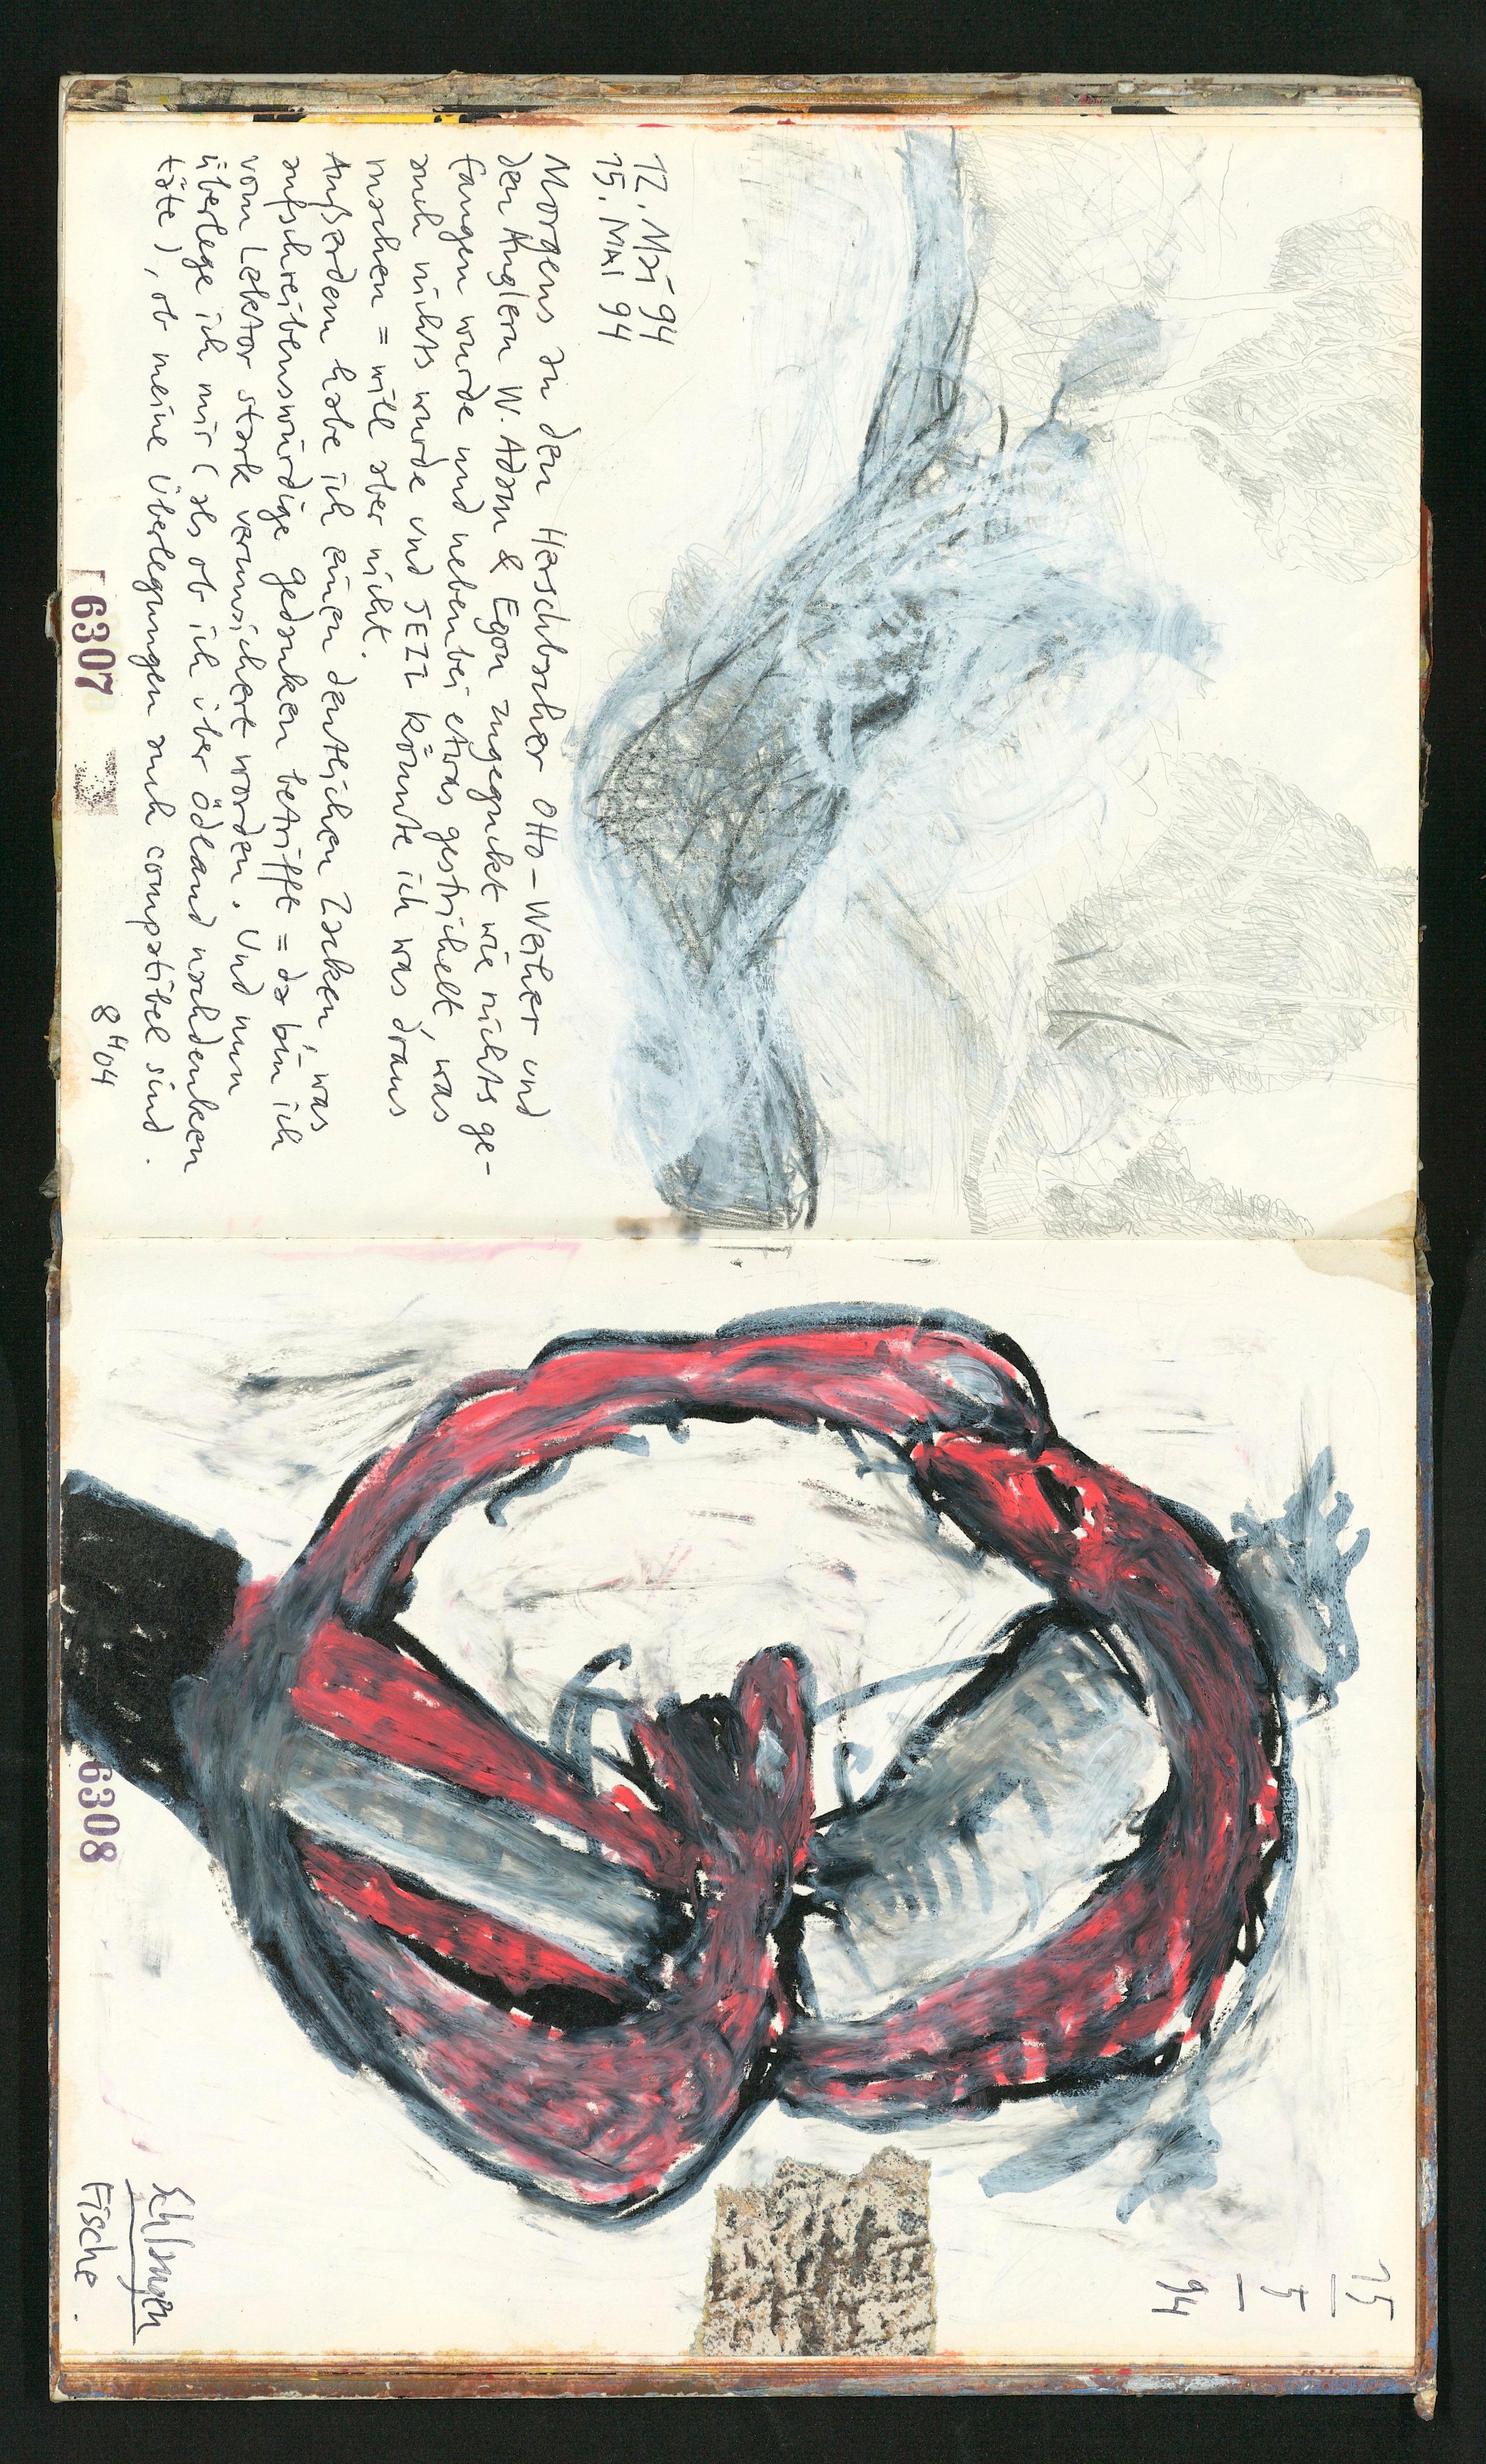 12. Mai 94
15. MAI 94
Morgens an den Haschbacher Otto-Weiher und
den Anglern W. Adam & Egon zugeguckt wie nichts ge-
fangen wurde und nebenbei etwas gestrichelt, was
auch nichts wurde und JETZT könnte ich was draus
machen = will aber nicht.
Außerdem habe ich einen deutlichen Zacken, was
aufschreibenswürdige gedanken betrifft = da bin ich
vom Lektor stark verunsichert worden. Und nun
überlege ich mir (als ob ich über ödland nachdenken
täte), ob meine Überlegungen auch compatibel sind.
8H04
6307
15
5
94
Schlangen
Fische.
6308